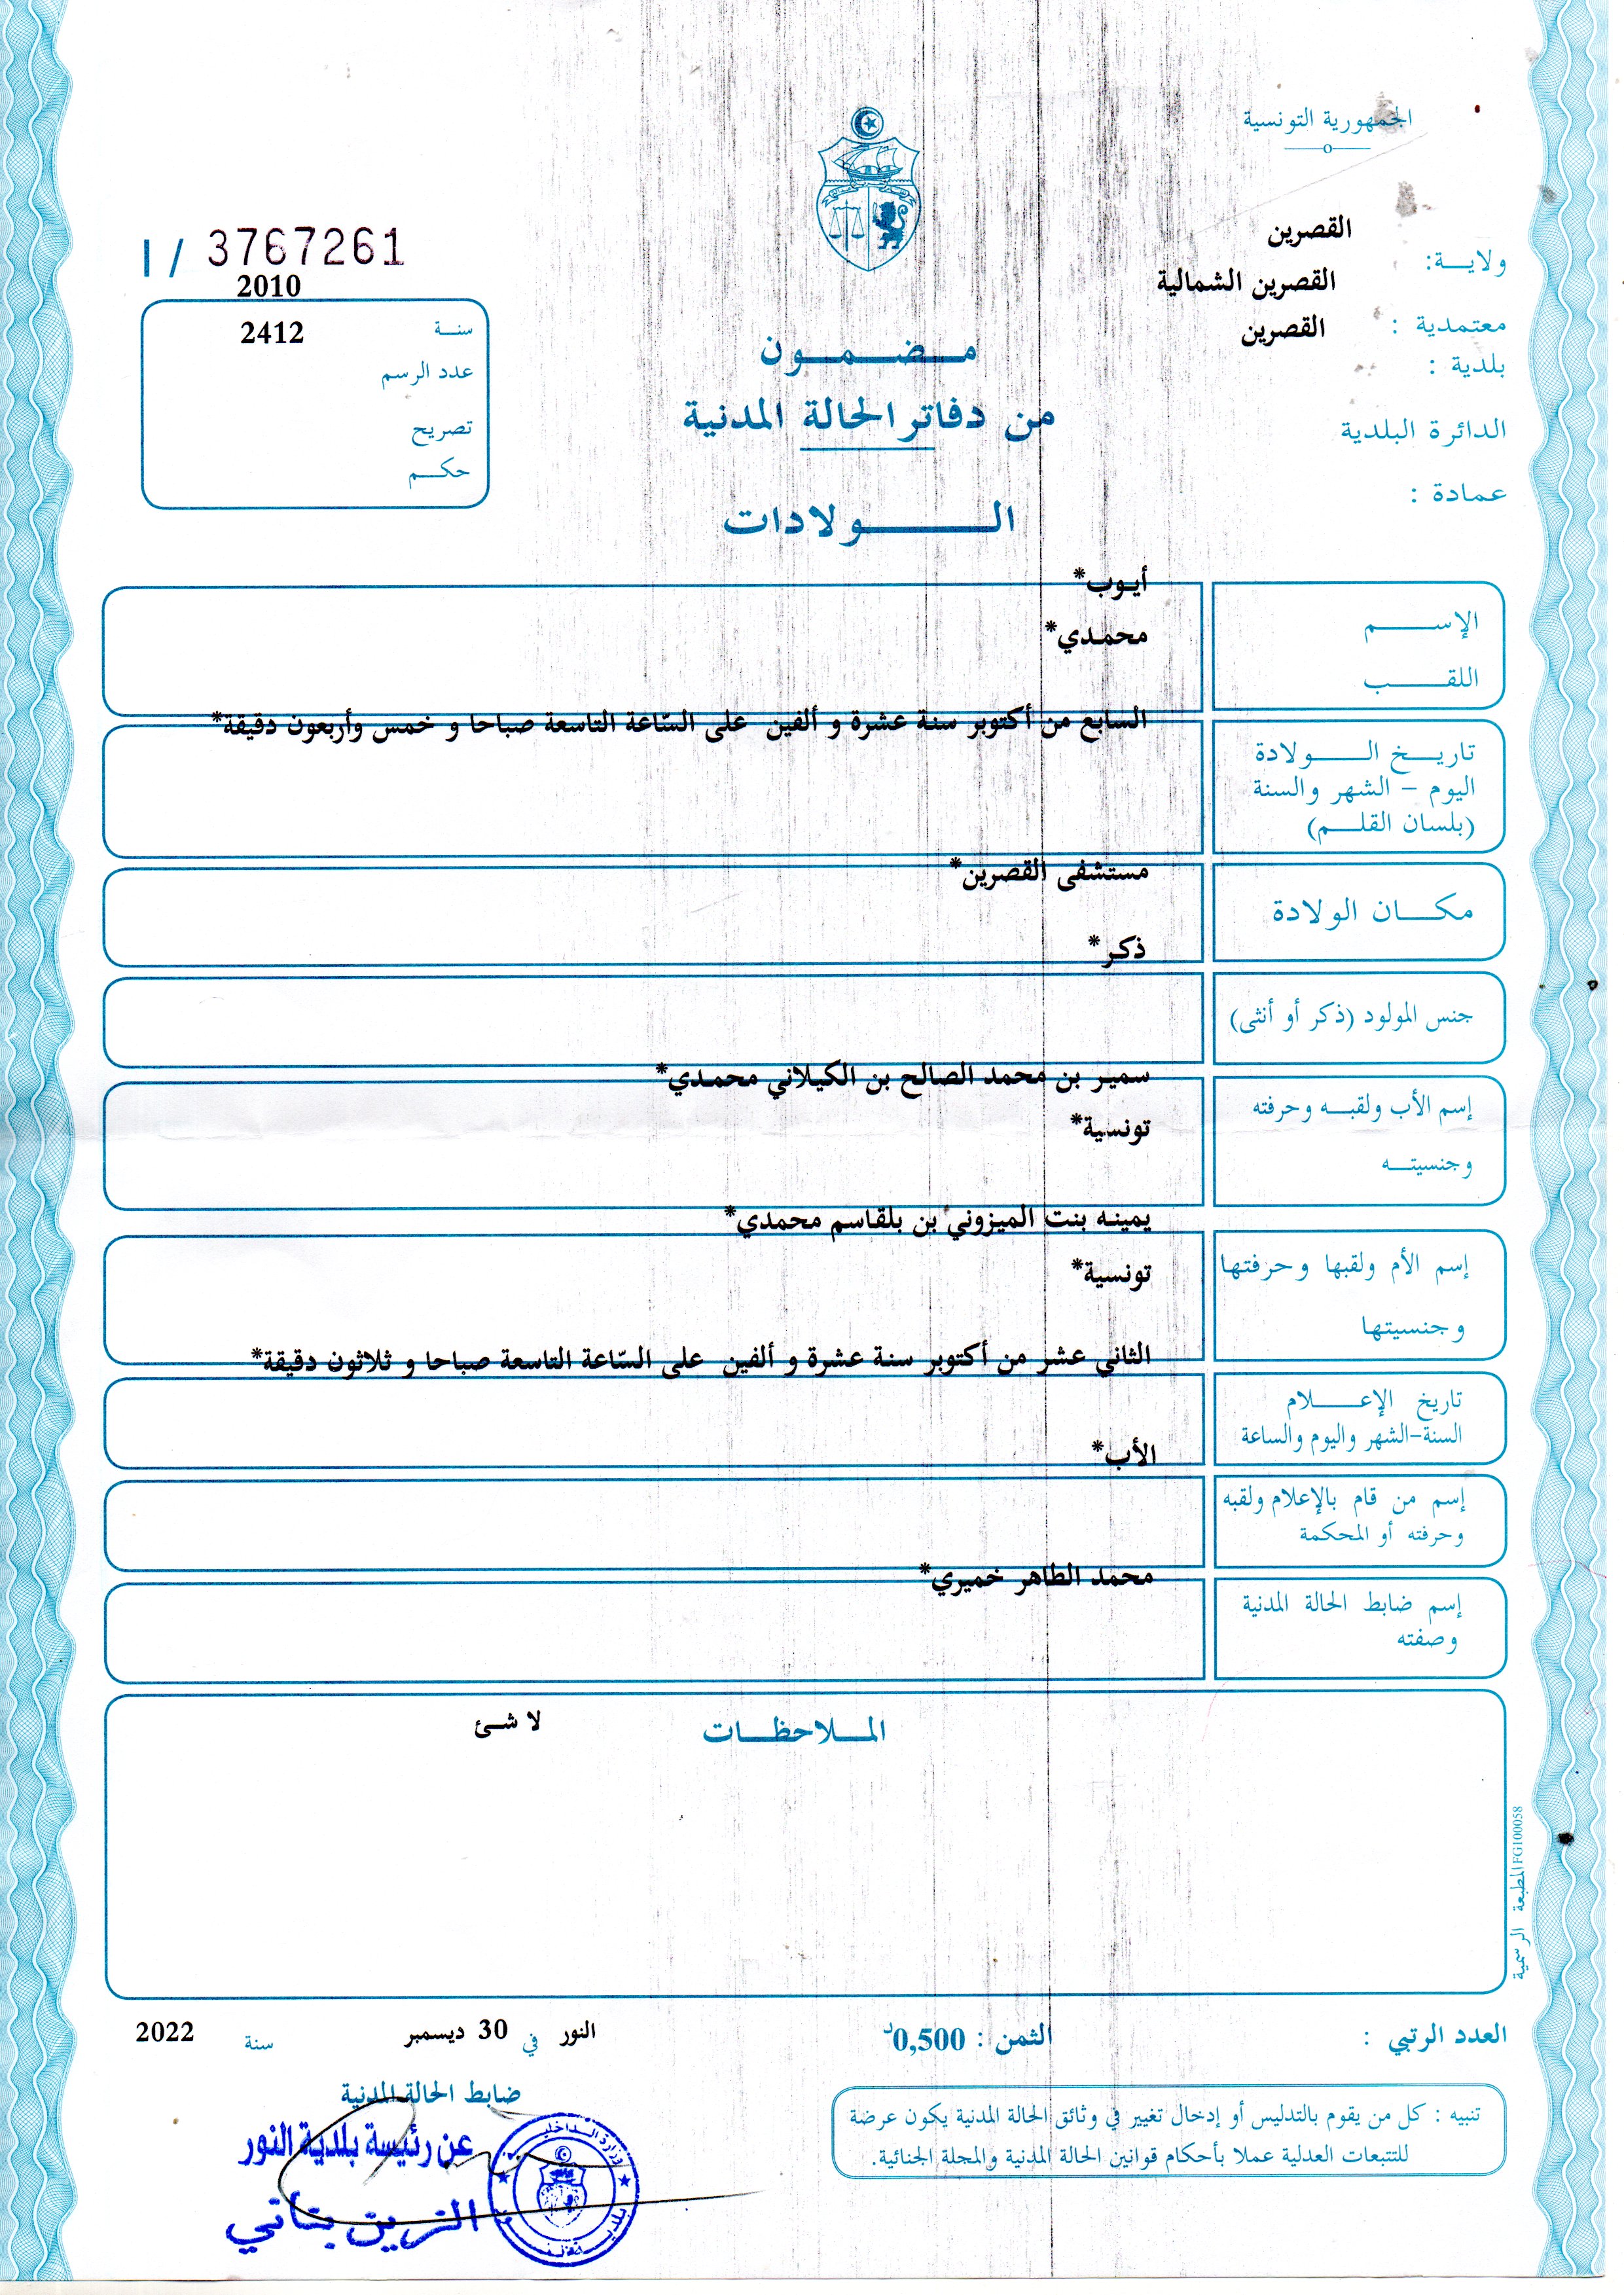 الجمهورية التونسية
القصرين
ولايـــة:
القصرين الشمالية
معتمدية :
القصرين
بلدية :
الدائرة البلدية
عمادة :
I / 3767261
2010
سنـة
2412
عدد الرسم
تصريح
حكــم
مــضــمــون
من دفاتر الحالة المدنية
الــــولادات
أيوب*
الإســــم
محمدي*
اللقــــب
السابع من أكتوبر سنة عشرة و ألفين على السّاعة التاسعة صباحا و خمس وأربعون دقيقة*
تاريــخ الــــولادة
اليوم – الشهر والسنة
(بلسان القلـــم)
مستشفى القصرين*
مكـــان الولادة
ذكر*
جنس المولود (ذكر أو أنثى)
سمير بن محمد الصالح بن الكيلاني محمدي*
إسم الأب ولقبــه وحرفته
تونسية*
وجنسيتــه
يمينه بنت الميزوني بن بلقاسم محمدي*
إسم الأم ولقبها وحرفتها
تونسية*
وجنسيتها
الثاني عشر من أكتوبر سنة عشرة و ألفين على السّاعة التاسعة صباحا و ثلاثون دقيقة*
تاريخ الإعــــلام
السنة-الشهر واليوم والساعة
الأب*
إسم من قام بالإعلام ولقبه
وحرفته أو المحكمة
محمد الطاهر خميري*
إسم ضابط الحالة المدنية
وصفته
المــلاحظــات
لا شئ
المطبعة الرسمية FG100058
العدد الرتبي :
الثمن : 0,500د
النور في 30 ديسمبر سنة 2022
ضابط الحالة المدنية
عن رئيسة بلدية النور
تنبيه : كل من يقوم بالتدليس أو إدخال تغيير في وثائق الحالة المدنية يكون عرضة
للتتبعات العدلية عملا بأحكام قوانين الحالة المدنية والمجلة الجنائية.
وزارة الداخلية